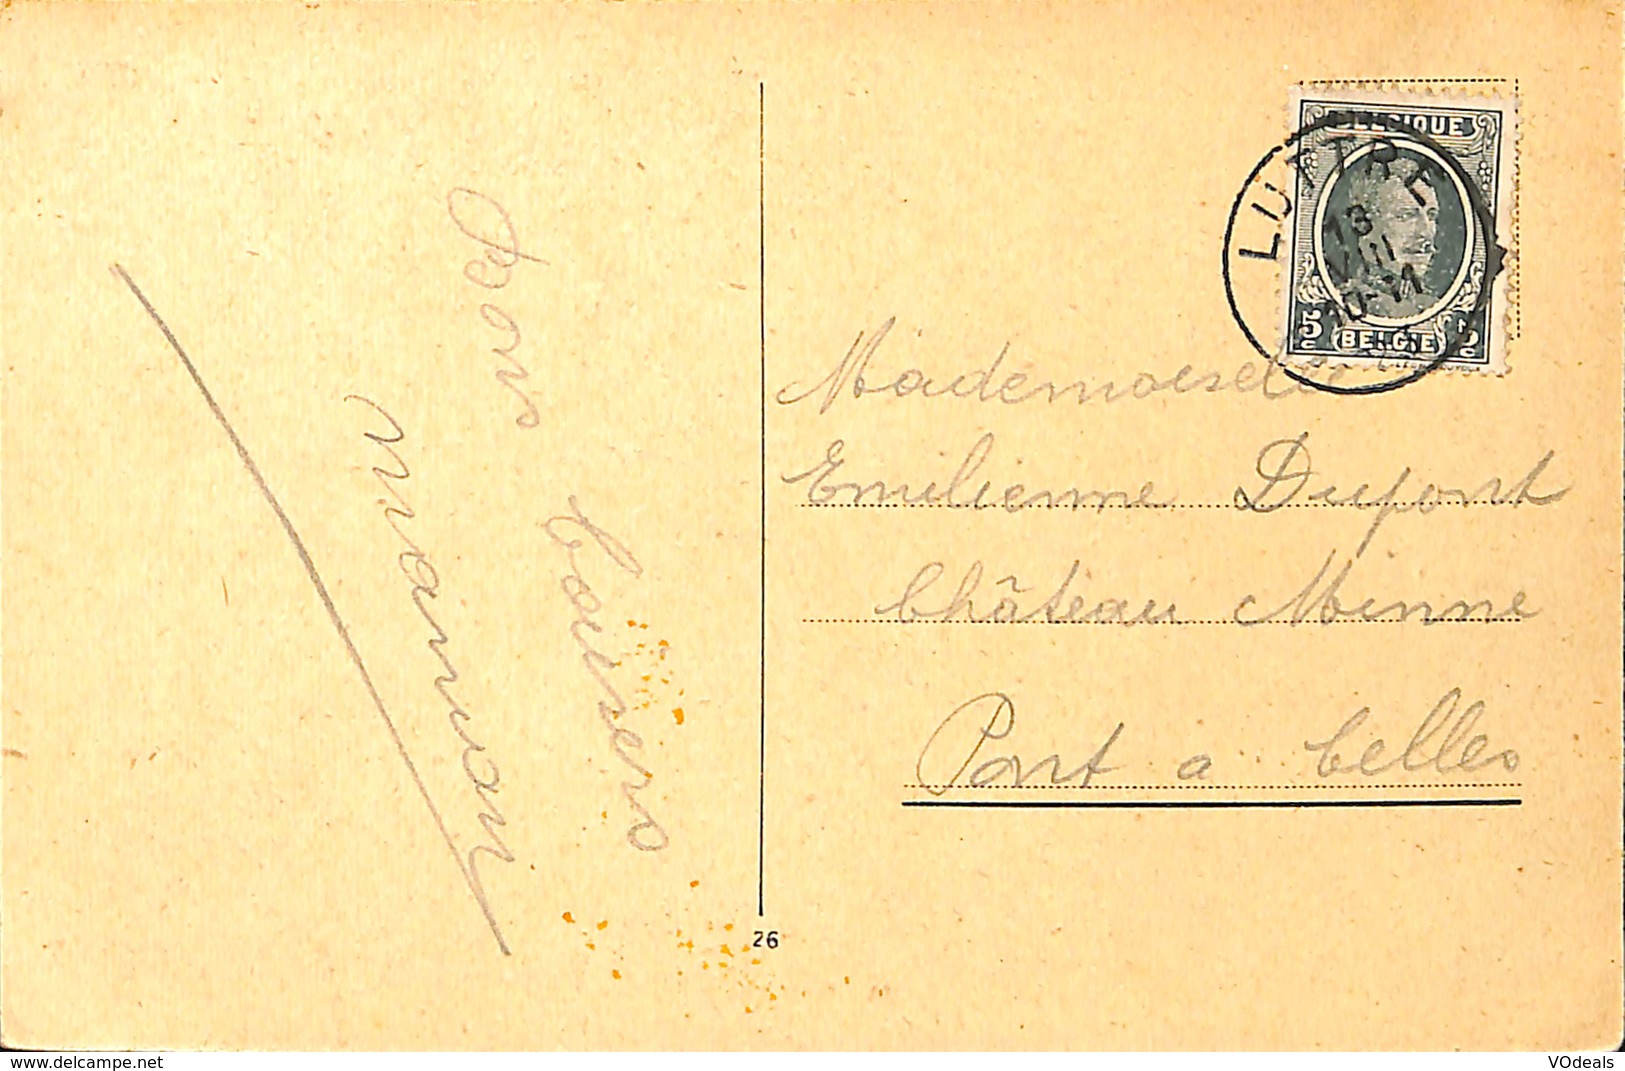 Bons
baisers
maman
BELGIQUE
LUTTRE
13
VIII
10-11
5
C
BELGIË
5
C
Mademoiselle
Emilienne Dupont
Château Minne
Pont a Celles
26
delcampe.net
VOdeals